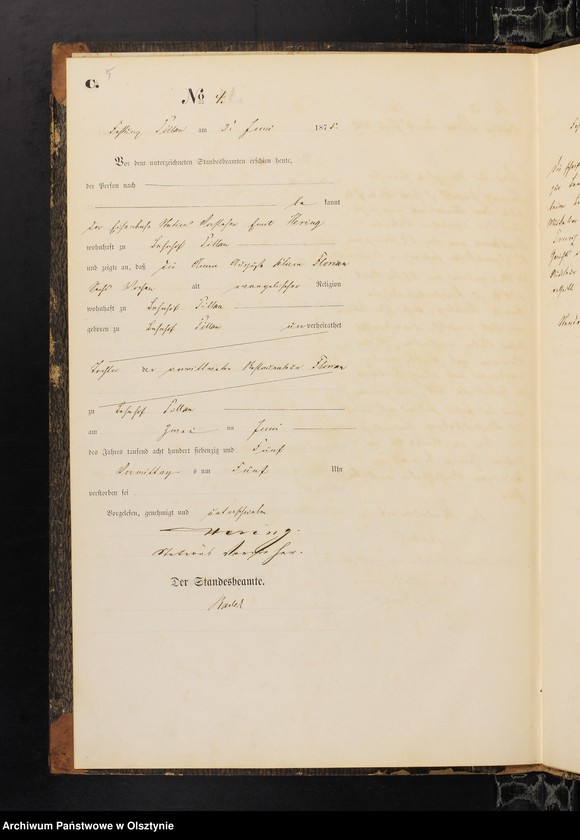 C. 5
No 4.
Festung Pillau am 3. Juni 1875.
Vor dem unterzeichneten Standesbeamten erschien heute,
der Person nach
be kannt
der Eisenbahn Station Vorsteher Emil Hering
wohnhaft zu Bahnhof Pillau
und zeigte an, daß die Anna Auguste Klara Florian
Sechs Wochen alt evangelischer Religion
wohnhaft zu Bahnhof Pillau
geboren zu Bahnhof Pillau unverheirathet
Tochter der verwittweten Restaurateur Florian
zu Bahnhof Pillau
am zwei en Juni
des Jahres tausend acht hundert siebenzig und Fünf
Vormittags um Fünf Uhr
verstorben sei
Vorgelesen, genehmigt und unterschrieben
Hering.
Stations Vorsteher.
Der Standesbeamte.
Archiwum Państwowe w Olsztynie